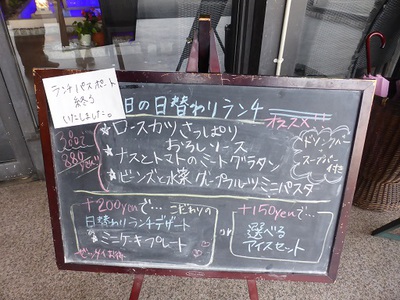 ランチパスポート
終了
いたしました。
日の日替わりランチ
オススメ!!
☆ロースカツさっぱり
おろしソース
☆ナスとトマトのミートグラタン
☆ビーンズと水菜グレープフルーツミニパスタ
ドリンクバー
スープバー
付き
+200yenで… こだわりの
日替わりランチデザート
☆ミニケーキプレート
or
+150yenで…
選べる
アイスセット